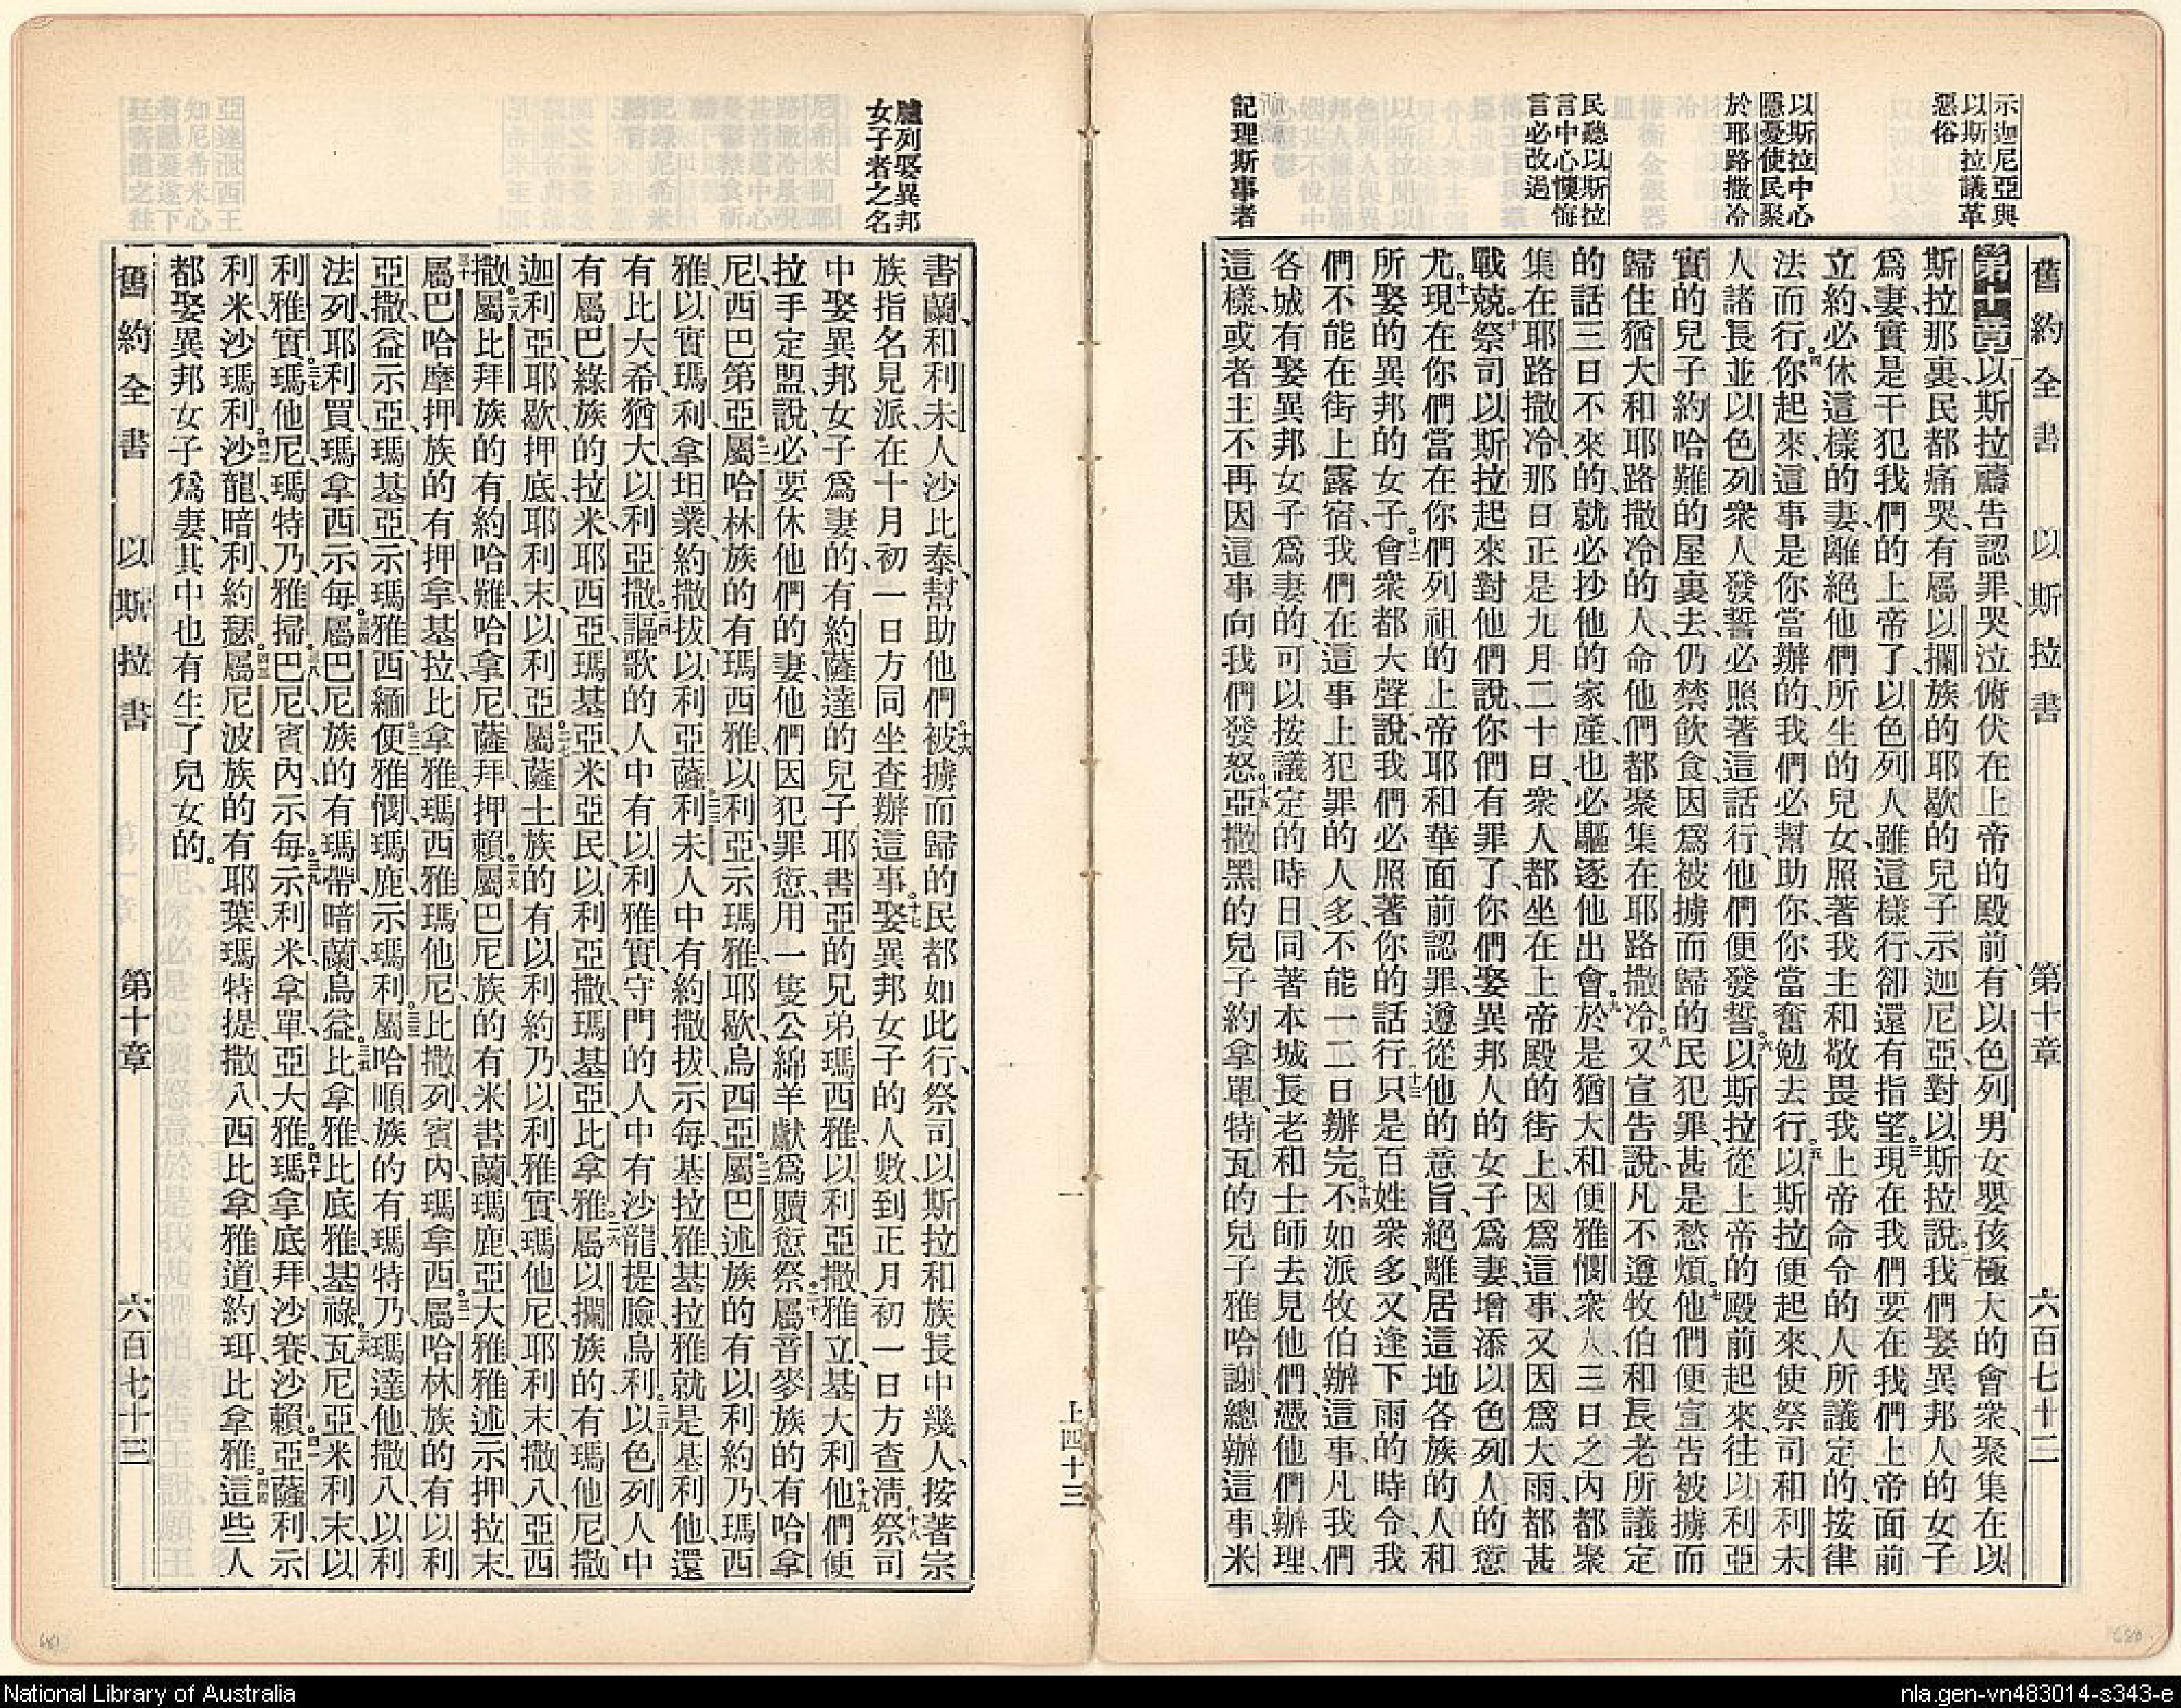 示迦尼亞與
以斯拉議革
惡俗
以斯拉中心
隱憂使民聚
於耶路撒冷
民聽以斯拉
言中心懊悔
言必改過
記理斯事者
舊約全書 以斯拉書 第十章 六百七十二
第十章以斯拉禱告、認罪、哭泣、俯伏在上帝的殿前、有以色列男女嬰孩極大的會衆、聚集在以
斯拉那裏、民都痛哭、有屬以攔族的耶歇的兒子示迦尼亞、對以斯拉說、我們娶異邦人的女子
爲妻、實是干犯我們的上帝了、以色列人雖這樣行、卻還有指望。三現在我們要在我們上帝面前
立約、必休這樣的妻、離絕他們所生的兒女、照著我主和敬畏我上帝命令的人所議定的、按律
法而行。四你起來、這事是你當辦的、我們必幫助你、你當奮勉去行。五以斯拉便起來、使祭司和利未
人諸長、並以色列衆人發誓、必照著這話行、他們便發誓。六以斯拉從上帝的殿前起來、往以利亞
實的兒子約哈難的屋裏去、仍禁飲食、因爲被擄而歸的民犯罪、甚是愁煩。七他們便宣告被擄而
歸住猶大和耶路撒冷的人、命他們都聚集在耶路撒冷。八又宣告說、凡不遵牧伯和長老所議定
的話、三日不來的、就必抄他的家產、也必驅逐他出會。九於是猶大和便雅憫衆人、三日之內、都聚
集在耶路撒冷、那日正是九月二十日、衆人都坐在上帝殿的街上、因爲這事、又因爲大雨、都甚
戰兢。十祭司以斯拉起來、對他們說、你們有罪了、你們娶異邦人的女子爲妻、增添以色列人的愆
尤。十一現在你們當在你們列祖的上帝耶和華面前認罪、遵從他的意旨、絕離居這地各族的人和
所娶的異邦的女子。十二會衆都大聲說、我們必照著你的話行。十三只是百姓衆多、又逢下雨的時令、我
們不能在街上露宿、我們在這事上犯罪的人多、不能一二日辦完。十四不如派牧伯辦這事、凡我們
各城有娶異邦女子爲妻的、可以按議定的時日、同著本城長老和士師去見他們、憑他們辦理、
這樣、或者主不再因這事向我們發怒。十五亞撒黑的兒子約拿單、特瓦的兒子雅哈謝、總辦這事、米
上四十三
臚列娶異邦
女子者之名
書蘭和利未人沙比泰、幫助他們。十六被擄而歸的民、都如此行、祭司以斯拉和族長中幾人、按著宗
族指名見派、在十月初一日、方同坐查辦這事。十七娶異邦女子的人數、到正月初一日、方查清。十八祭司
中娶異邦女子爲妻的、有約薩達的兒子耶書亞的兄弟瑪西雅、以利亞撒、雅立、基大利。十九他們便
拉手定盟、說、必要休他們的妻、他們因犯罪愆、用一隻公綿羊獻爲贖愆祭。二十屬音麥族的有哈拿
尼、西巴第亞。二一屬哈林族的有瑪西雅、以利亞、示瑪雅、耶歇、烏西亞。二二屬巴述族的有以利約乃、瑪西
雅、以實瑪利、拿坦業、約撒拔、以利亞薩。二三利未人中有約撒拔、示每、基拉雅、基拉雅就是基利他、還
有比大希、猶大、以利亞撒。二四謳歌的人中有以利雅實、守門的人中有沙龍、提臉、烏利。二五以色列人中
有屬巴綠族的拉米、耶西亞、瑪基亞、米亞民、以利亞撒、瑪基亞、比拿雅。二六屬以攔族的有瑪他尼、撒
迦利亞、耶歇、押底、耶利末、以利亞。二七屬薩土族的有以利約乃、以利雅實、瑪他尼、耶利末、撒八、亞西
撒。二八屬比拜族的有約哈難、哈拿尼、薩拜、押賴。二九屬巴尼族的有米書蘭、瑪鹿、亞大雅、雅述、示押、拉末。
三十屬巴哈摩押族的有押拿、基拉、比拿雅、瑪西雅、瑪他尼、比撒列、賓內、瑪拿西。三一屬哈林族的有以利
亞撒、益示亞、瑪基亞、示瑪雅、西緬。三二便雅憫、瑪鹿、示瑪利。三三屬哈順族的有瑪特乃、瑪達他、撒八、以利
法列、耶利買、瑪拿西、示每。三四屬巴尼族的有瑪帶、暗蘭、烏益。三五比拿雅、比底雅、基祿。三六瓦尼亞、米利末、以
利雅實。三七瑪他尼、瑪特乃、雅掃。三八巴尼、賓內、示每。三九示利米、拿單、亞大雅。四十瑪拿底拜、沙賽、沙賴。四一亞薩利、示
利米、沙瑪利。四二沙龍、暗利、約瑟。四三屬尼波族的有耶葉、瑪特提、撒八、西比拿、雅道、約珥、比拿雅。四四這些人
都娶異邦女子爲妻、其中也有生了兒女的。
舊約全書 以斯拉書 第十章 六百七十三
National Library of Australia
nla.gen-vn483014-s343-e